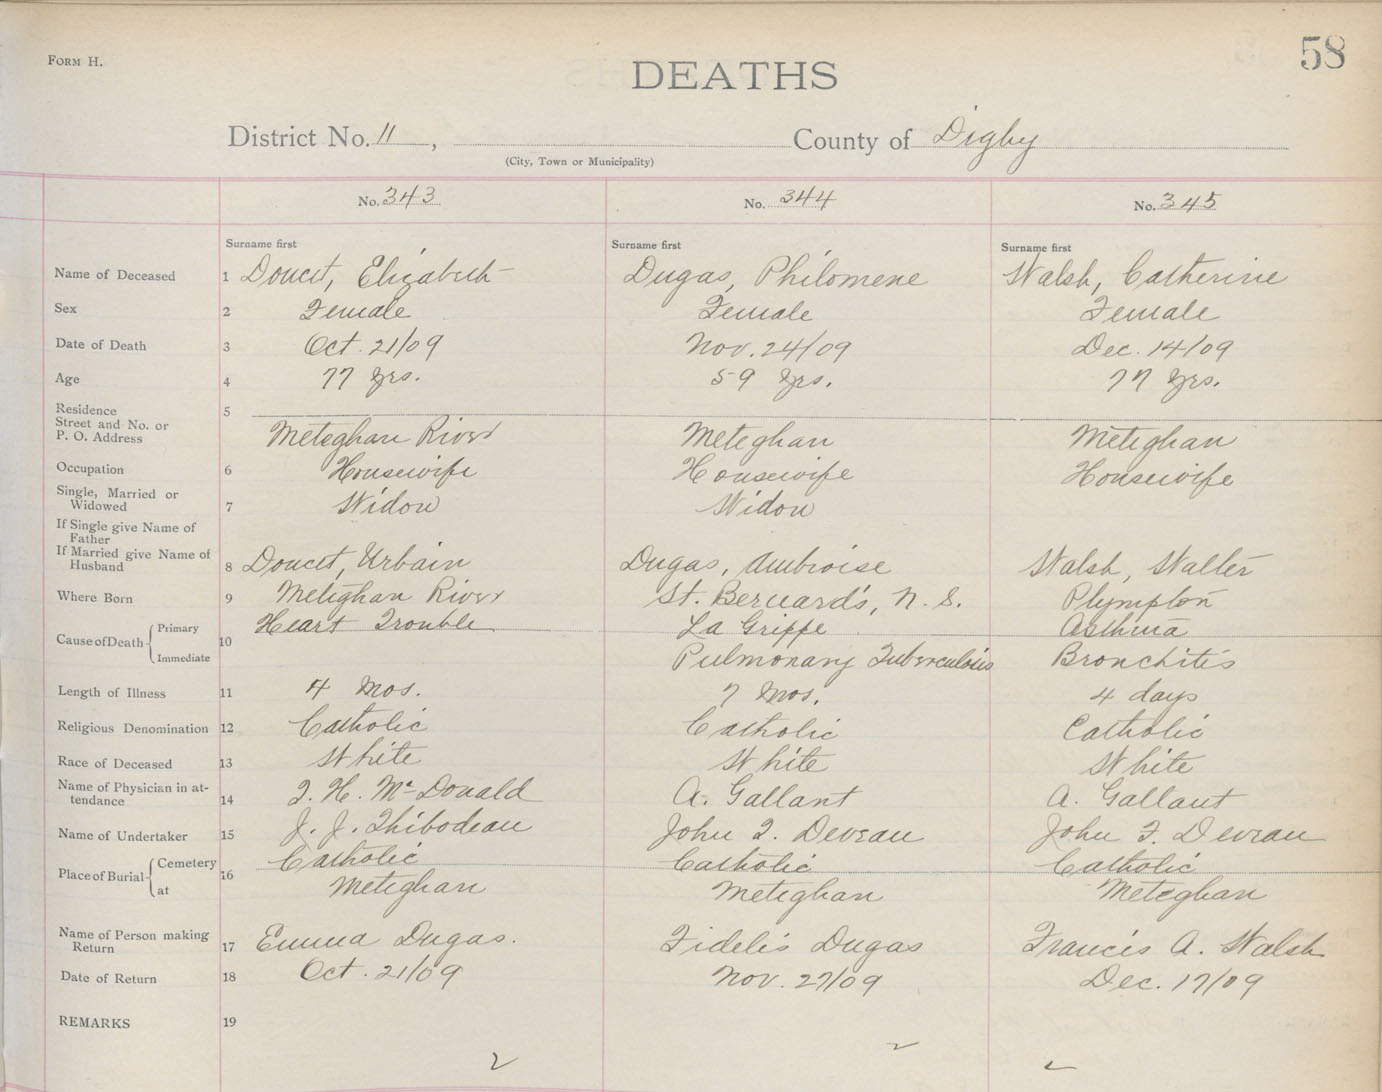 58
FORM H.
DEATHS
District No. 11, County of Digby
(City, Town or Municipality)
No. 343 No. 344 No. 345
Surname first Surname first Surname first
Name of Deceased 1 Doucet, Elizabeth Dugas, Philomene Walsh, Catherine
Sex 2 Female Female Female
Date of Death 3 Oct. 21/09 Nov. 24/09 Dec. 14/09
Age 4 77 yrs. 59 yrs. 77 yrs.
Residence 5
Street and No. or
P. O. Address Meteghan River Meteghan Meteghan
Occupation 6 Housewife Housewife Housewife
Single, Married or
Widowed 7 Widow Widow
If Single give Name of
Father
If Married give Name of
Husband 8 Doucet, Urbain Dugas, Ambroise Walsh, Walter
Where Born 9 Meteghan River St. Bernard's, N. S. Plympton
Cause of Death 10 Primary Heart Trouble La Grippe Asthma
Immediate Pulmonary Tuberculosis Bronchitis
Length of Illness 11 4 Mos. 7 Mos. 4 days
Religious Denomination 12 Catholic Catholic Catholic
Race of Deceased 13 White White White
Name of Physician in at-
tendance 14 J. H. McDonald A. Gallant A. Gallant
Name of Undertaker 15 J. J. Thibodeau John F. Deveau John F. Deveau
Place of Burial 16 Cemetery Catholic Catholic Catholic
at Meteghan Meteghan Meteghan
Name of Person making
Return 17 Emma Dugas. Fidelis Dugas Francis A. Walsh
Date of Return 18 Oct. 21/09 Nov. 27/09 Dec. 17/09
REMARKS 19